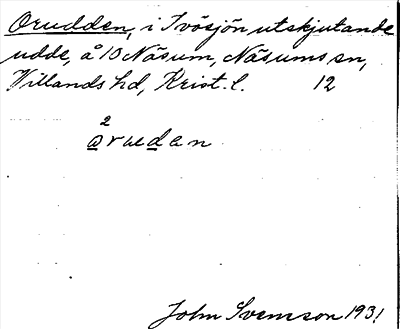 Orudden, i Ivösjön utskjutande
udde, å 10 Näsum, Näsums sn,
Villands hd, Krist. l. 12
2
oruden
John Svemson 1931